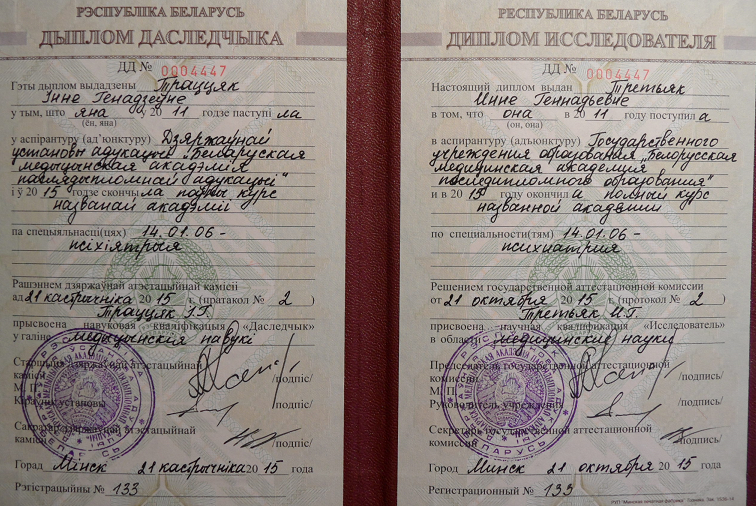 РЭСПУБЛІКА БЕЛАРУСЬ
ДЫПЛОМ ДАСЛЕДЧЫКА
ДД № 0004447
Гэты дыплом выдадзены Траццяк
Інне Генадзеўне
у тым, што яна у 2011 годзе паступі ла
(ён, яна)
у аспірантуру (ад'юнктуру) Дзяржаўнай
установы адукацыі „Беларуская
медыцынская акадэмія
паслядыпломнай адукацыі"
і ў 2015 годзе скончы ла поўны курс
названай акадэміі
па спецыяльнасці(цях) 14.01.06 -
псіхіятрыя
Рашэннем дзяржаўнай атэстацыйнай камісіі
ад 21 кастрычніка 2015 г. (пратакол № 2)
Траццяк І.Г.
прысвоена навуковая кваліфікацыя «Даследчык»
у галіне медыцынскія навукі
Старшыня дзяржаўнай атэстацыйнай
камісіі /подпіс/
М. П.
Кіраўнік установы /подпіс/
Сакратар дзяржаўнай атэстацыйнай
камісіі /подпіс/
Горад Мінск 21 кастрычніка 2015 года
Рэгістрацыйны № 133
РЕСПУБЛИКА БЕЛАРУСЬ
ДИПЛОМ ИССЛЕДОВАТЕЛЯ
ДД № 0004447
Настоящий диплом выдан Третьяк
Инне Геннадьевне
в том, что она в 2011 году поступил а
(он, она)
в аспирантуру (адъюнктуру) Государственного
учреждения образования „Белорусская
медицинская академия
последипломного образования"
и в 2015 году окончил а полный курс
названной академии
по специальности(тям) 14.01.06 -
психиатрия
Решением государственной аттестационной комиссии
от 21 октября 2015 г. (протокол № 2)
Третьяк И.Г.
присвоена научная квалификация «Исследователь»
в области медицинские науки
Председатель государственной аттестационной
комиссии /подпись/
М. П.
Руководитель учреждения /подпись/
Секретарь государственной аттестационной
комиссии /подпись/
Город Минск 21 октября 2015 года
Регистрационный № 133